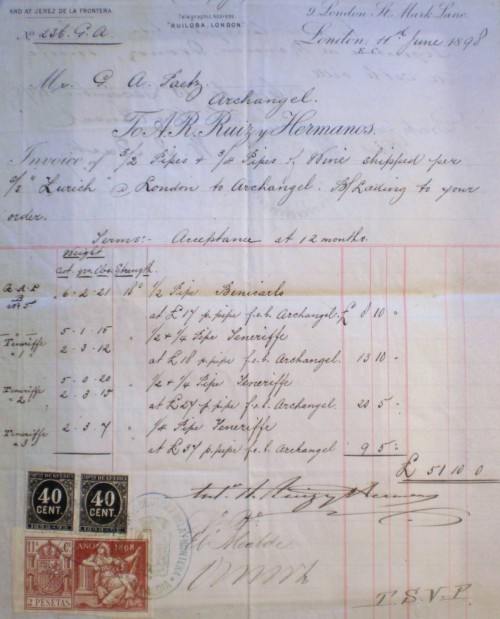 AND AT JEREZ DE LA FRONTERA
Telegraphic Address
"RUILOBA, LONDON."
9 London St. Mark Lane.
No 236. G.A.
London, 11th June 1898
E.C.
Mr. G. A.
Archangel.
To A. R. Ruiz y Hermanos.
Invoice of 3/2 Pipes & 3/4 Pipes of Wine shipped per
S/S "Zurich" @ London to Archangel. B/Lading to your
order.
Terms:- Acceptance at 12 months.
Weight
Cwt. qrs. lbs. Strength.
6 - 2 - 21 18° 1/2 Pipe Benicarlo
at £17 p. pipe f.o.b. Archangel. £ 8 10 "
Teneriffe 1 5 - 1 - 15 1/2 & 1/4 Pipe Teneriffe
2 - 3 - 12 at £18 p. pipe f.o.b. Archangel. 13 10 "
Teneriffe 2 5 - 0 - 20 1/2 & 1/4 Pipe Teneriffe
2 - 3 - 13 at £27 p. pipe f.o.b. Archangel. 20 5 "
Teneriffe 3 2 - 3 - 7 1/4 Pipe Teneriffe
at £37 p. pipe f.o.b. Archangel 9 5 "
£ 51 10 0
40 CENT.
40 CENT.
11ª C.
AÑO 1898
2 PESETAS
T.S.V.P.